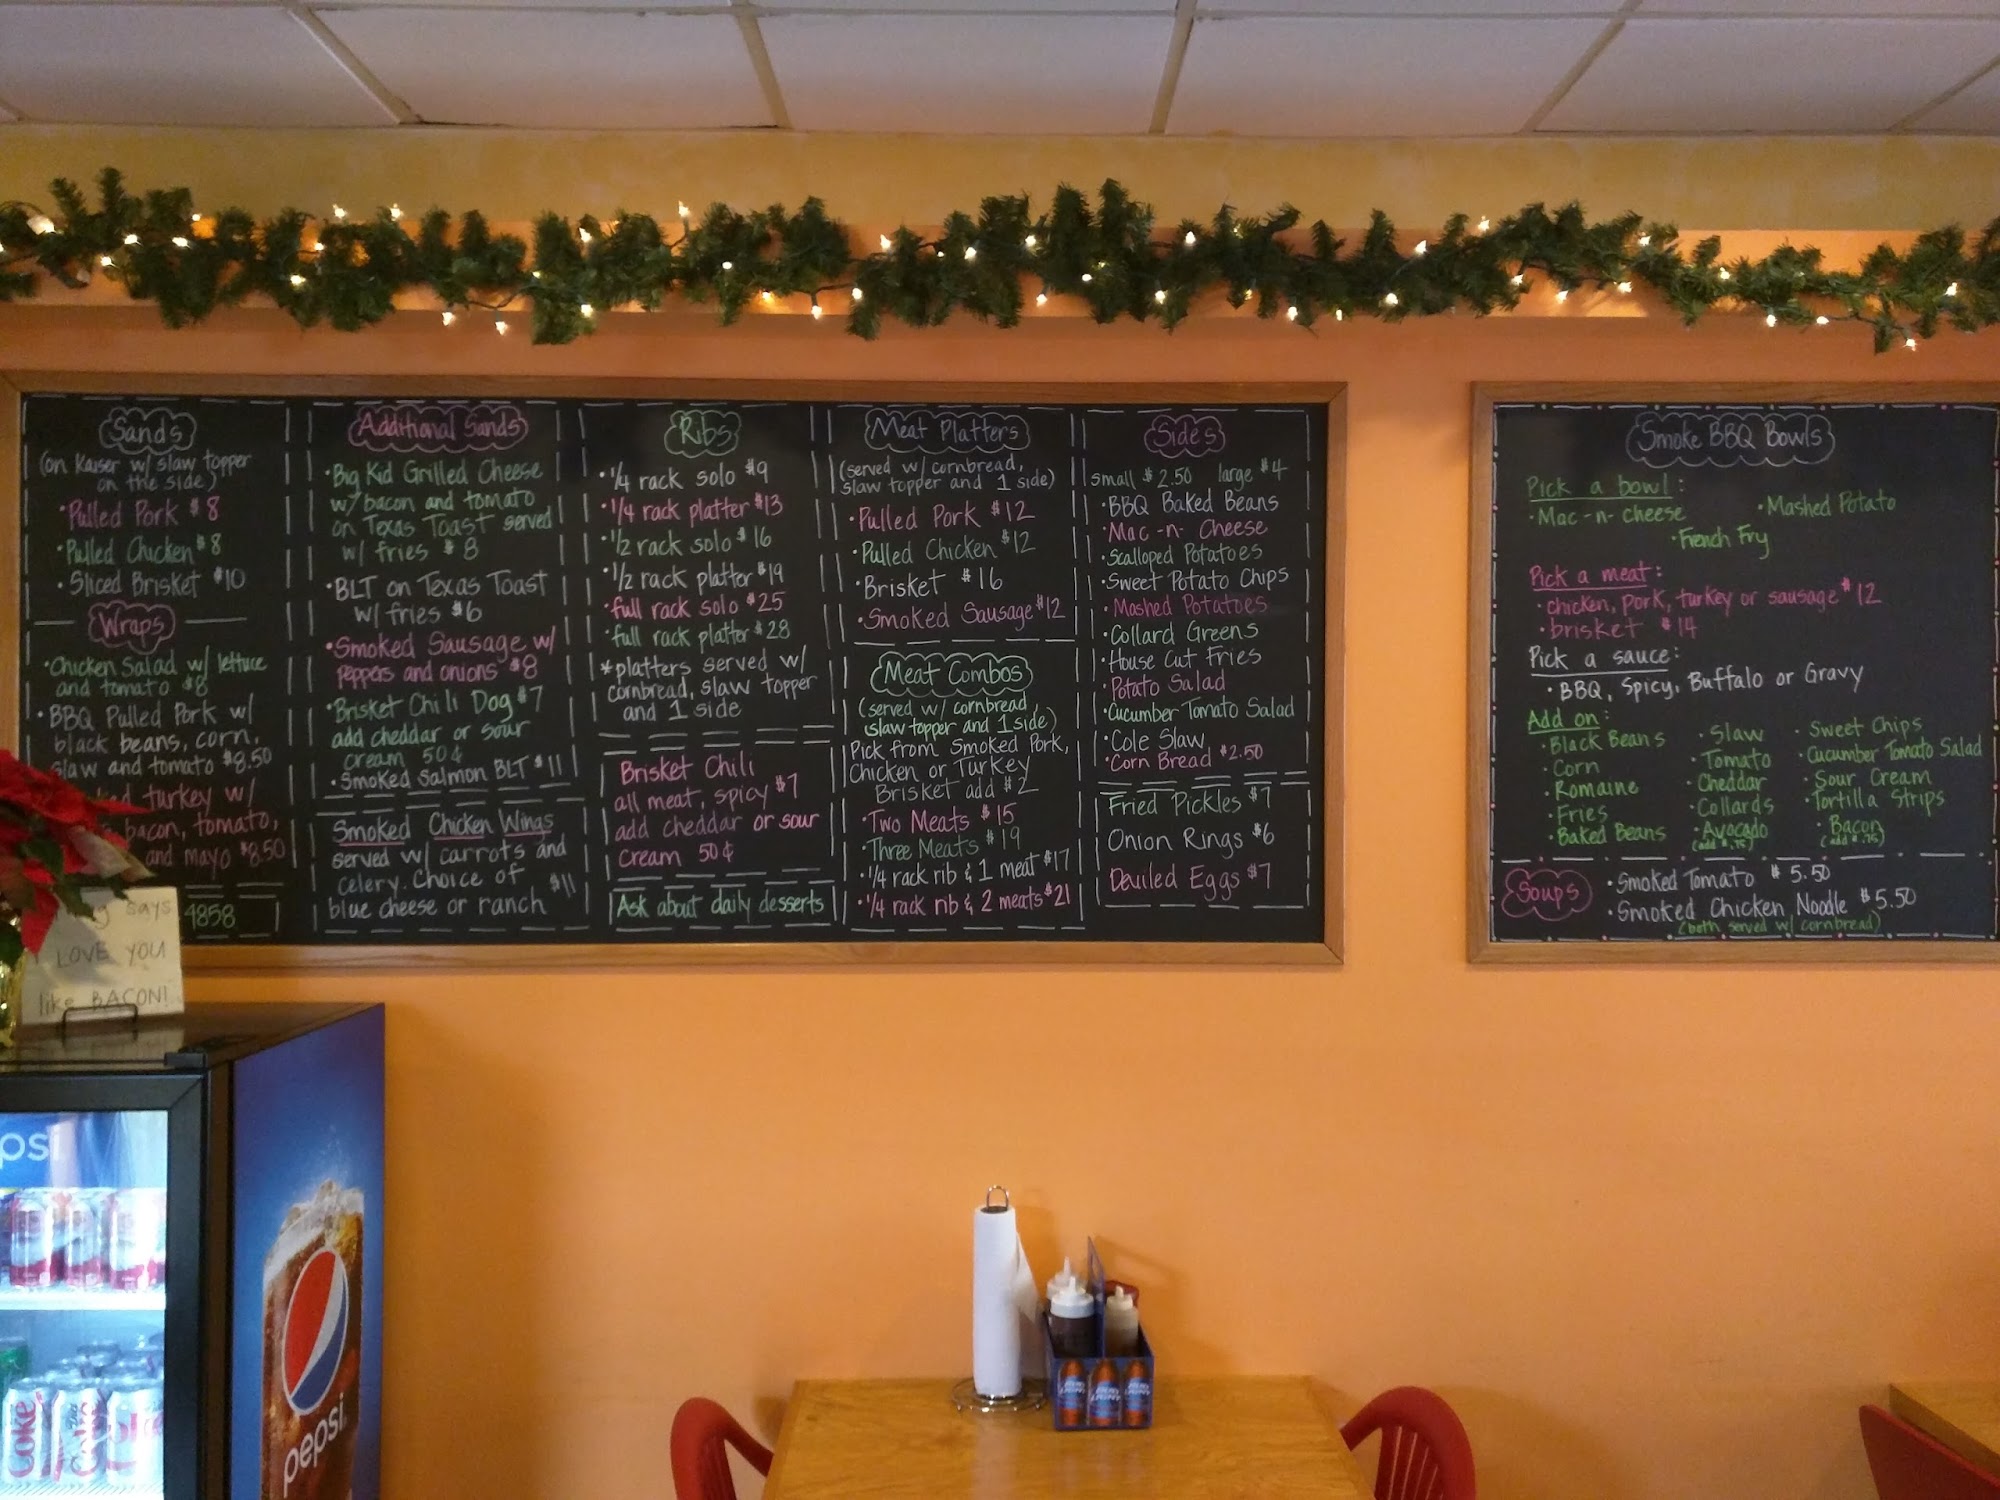 Sands
(on Kaiser w/ slaw topper
on the side)
• Pulled Pork $8
• Pulled Chicken $8
• Sliced Brisket $10
Wraps
• Chicken Salad w/ lettuce
and tomato $8
• BBQ Pulled Pork w/
black beans, corn,
slaw and tomato $8.50
turkey w/
bacon, tomato,
and mayo $8.50
4858
Additional Sands
• Big Kid Grilled Cheese
w/ bacon and tomato
on Texas Toast served
w/ fries $8
• BLT on Texas Toast
w/ fries $6
• Smoked Sausage w/
peppers and onions $8
• Brisket Chili Dog $7
add cheddar or sour
cream 50¢
• Smoked Salmon BLT $11
Smoked Chicken Wings
served w/ carrots and
celery. Choice of $11
blue cheese or ranch
Ribs
• 1/4 rack solo $9
• 1/4 rack platter $13
• 1/2 rack solo $16
• 1/2 rack platter $19
• full rack solo $25
• full rack platter $28
*platters served w/
cornbread, slaw topper
and 1 side
Brisket Chili
all meat, spicy $7
add cheddar or sour
cream 50¢
Ask about daily desserts
Meat Platters
(served w/ cornbread,
slaw topper and 1 side)
• Pulled Pork $12
• Pulled Chicken $12
• Brisket $16
• Smoked Sausage $12
Meat Combos
(served w/ cornbread,
slaw topper and 1 side)
Pick from Smoked Pork,
Chicken or Turkey
Brisket add $2
• Two Meats $15
• Three Meats $19
• 1/4 rack rib & 1 meat $17
• 1/4 rack rib & 2 meats $21
Sides
small $2.50 large $4
• BBQ Baked Beans
• Mac-n-Cheese
• Scalloped Potatoes
• Sweet Potato Chips
• Mashed Potatoes
• Collard Greens
• House Cut Fries
• Potato Salad
• Cucumber Tomato Salad
• Cole Slaw
• Corn Bread $2.50
Fried Pickles $7
Onion Rings $6
Deviled Eggs $7
Smoke BBQ Bowls
Pick a bowl:
• Mac-n-cheese • Mashed Potato
• French Fry
Pick a meat:
• chicken, pork, turkey or sausage $12
• brisket $14
Pick a sauce:
• BBQ, Spicy, Buffalo or Gravy
Add on:
• Black Beans
• Corn
• Romaine
• Fries
• Baked Beans
• Slaw
• Tomato
• Cheddar
• Collards
• Avocado
(add $.75)
• Sweet Chips
• Cucumber Tomato Salad
• Sour Cream
• Tortilla Strips
• Bacon
(add $.75)
Soups
• Smoked Tomato $5.50
• Smoked Chicken Noodle $5.50
(both served w/ cornbread)
says
I LOVE YOU
like BACON!
psi
pepsi
Coke
BUD LIGHT